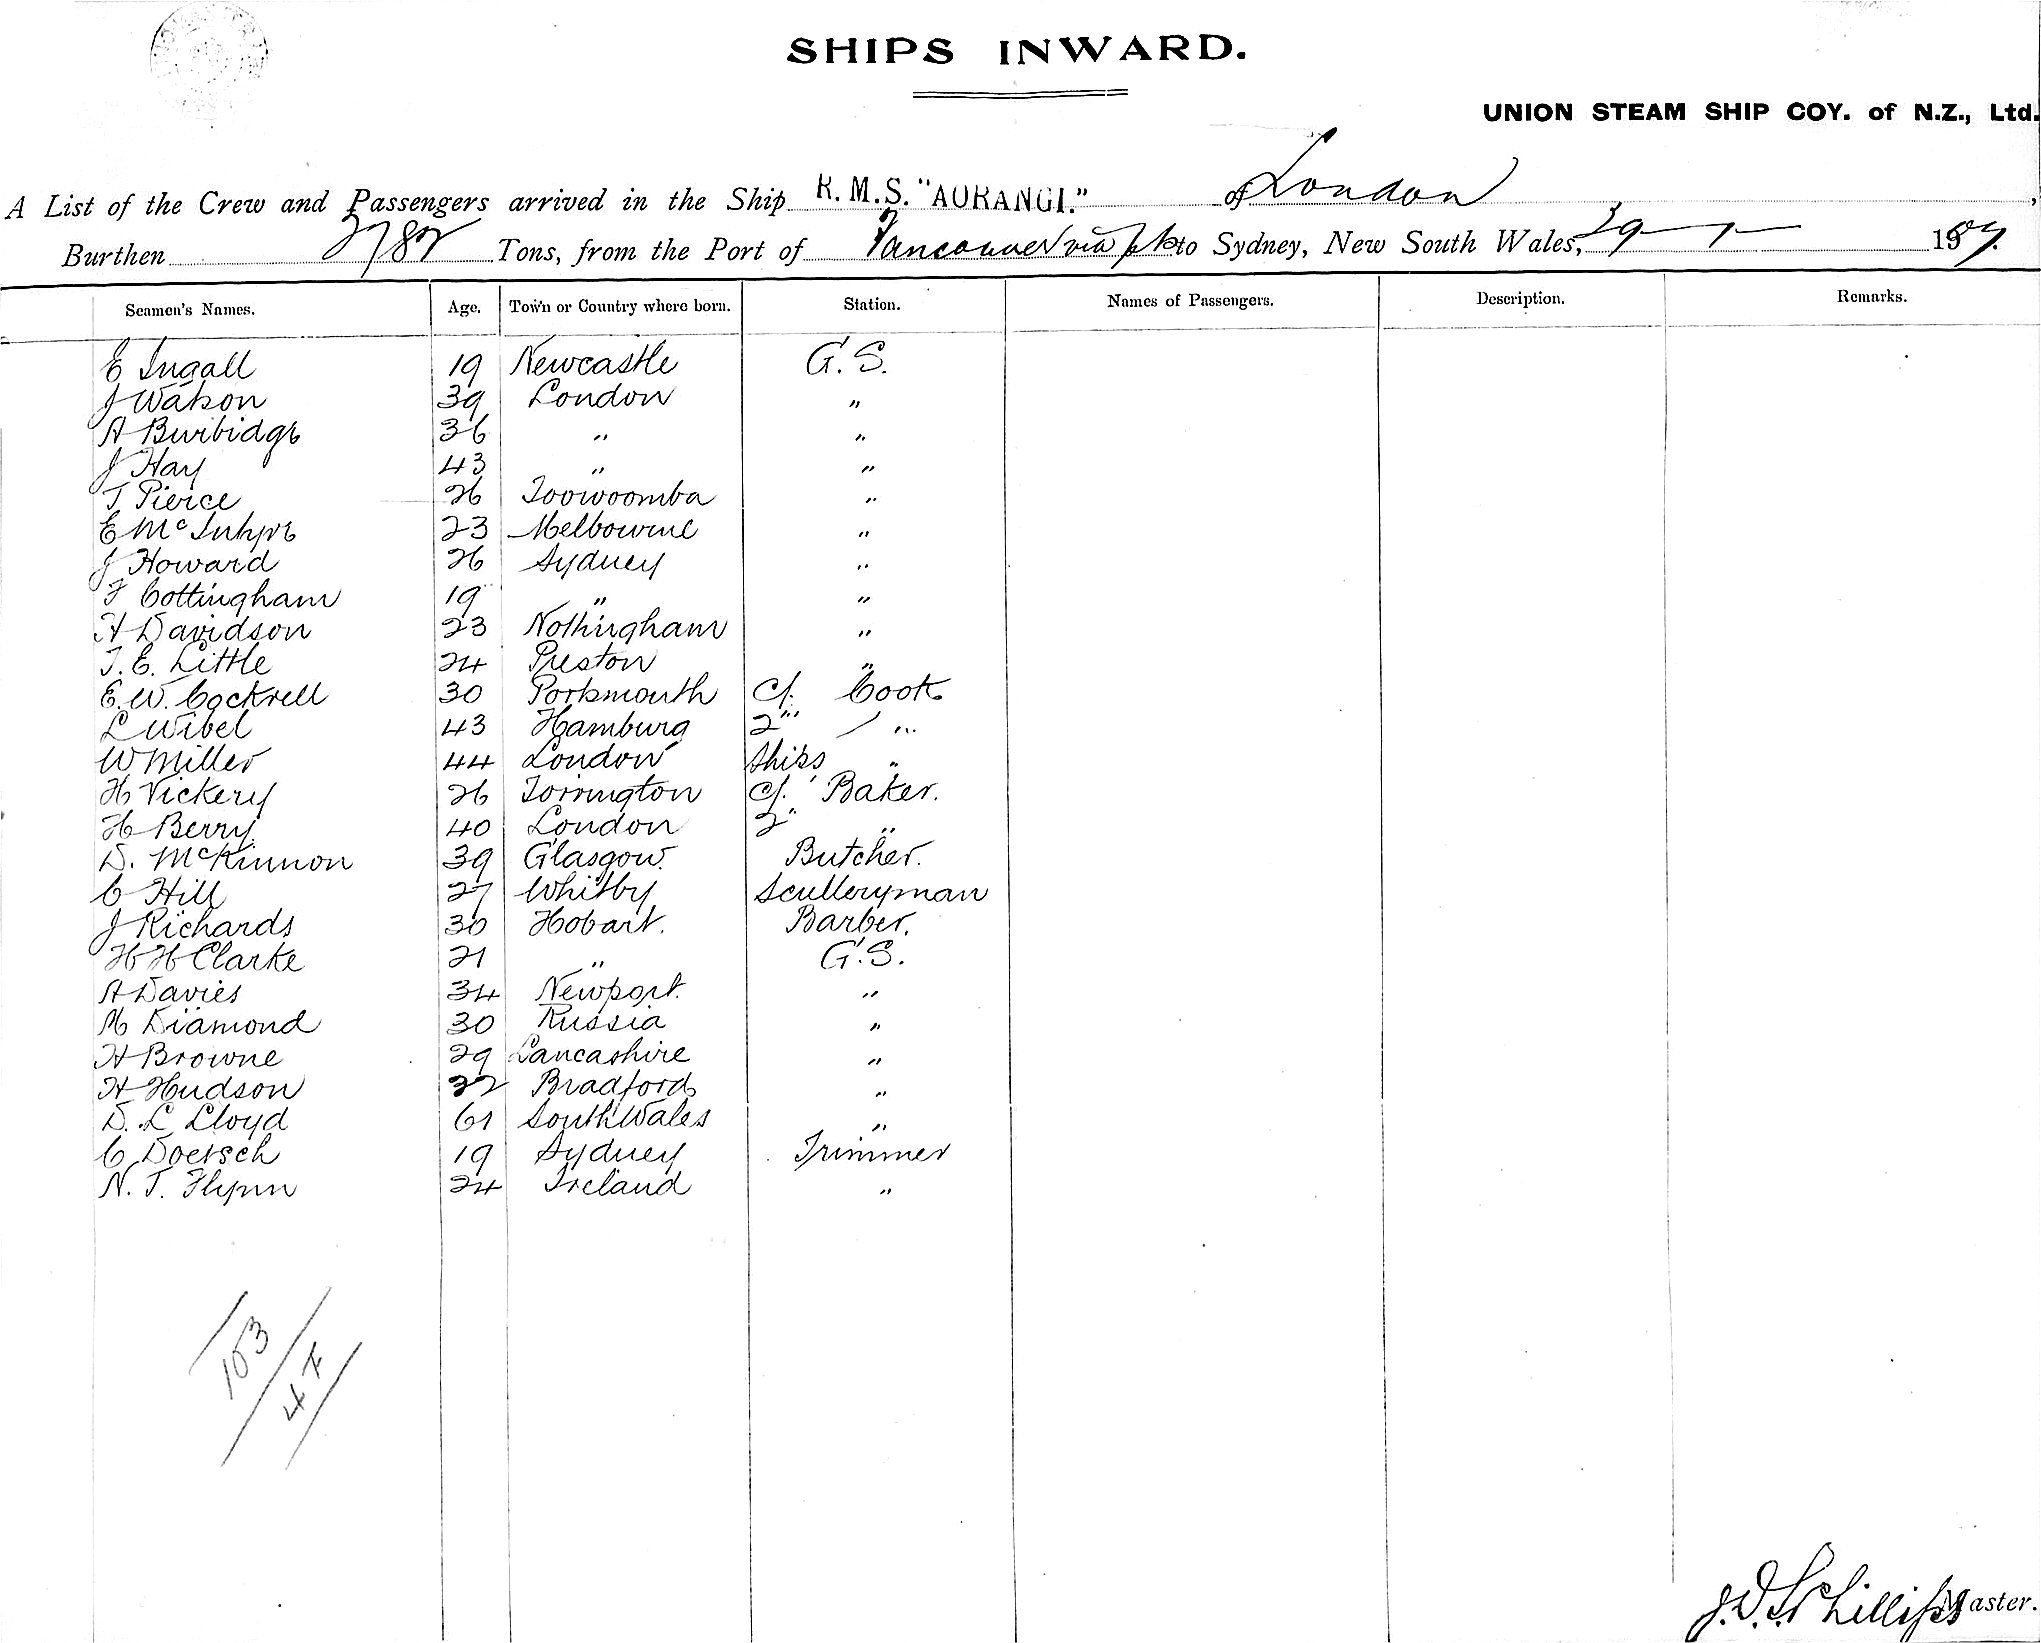 SHIPS INWARD.
UNION STEAM SHIP COY. of N.Z., Ltd.
A List of the Crew and Passengers arrived in the Ship R.M.S. "AORANGI." of London,
Burthen 2782 Tons, from the Port of Vancouver via pts to Sydney, New South Wales, 29-1- 1907.
Seamen's Names. Age. Town or Country where born. Station. Names of Passengers. Description. Remarks.
E Ingall 19 Newcastle G.S.
J Watson 39 London "
A Burbidge 36 " "
J Hay 43 " "
T Pierce 26 Toowoomba "
E McIntyre 23 Melbourne "
J Howard 26 Sydney "
F Cottingham 19 " "
H Davidson 23 Nottingham "
T. E. Little 24 Preston "
E. W. Cockrell 30 Portsmouth Cf. Cook
L Wibel 43 Hamburg 2" "
W Miller 44 London Ships "
H Vickery 26 Torrington Cf. Baker.
H Berry 40 London 2" "
D. McKinnon 39 Glasgow. Butcher.
C Hill 27 Whitby Sculleryman
J Richards 30 Hobart. Barber.
H H Clarke 21 " G.S.
A Davies 34 Newport. "
M Diamond 30 Russia "
H Browne 29 Lancashire "
H Hudson 22 Bradford "
D. L Lloyd 61 South Wales "
C Doersch 19 Sydney Trimmer
N. T. Flynn 24 Ireland "
103
4 F
Phillips Master.